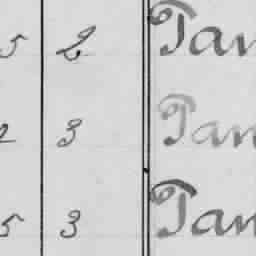 5 2 Tan
2 3 Tan
5 3 Tan